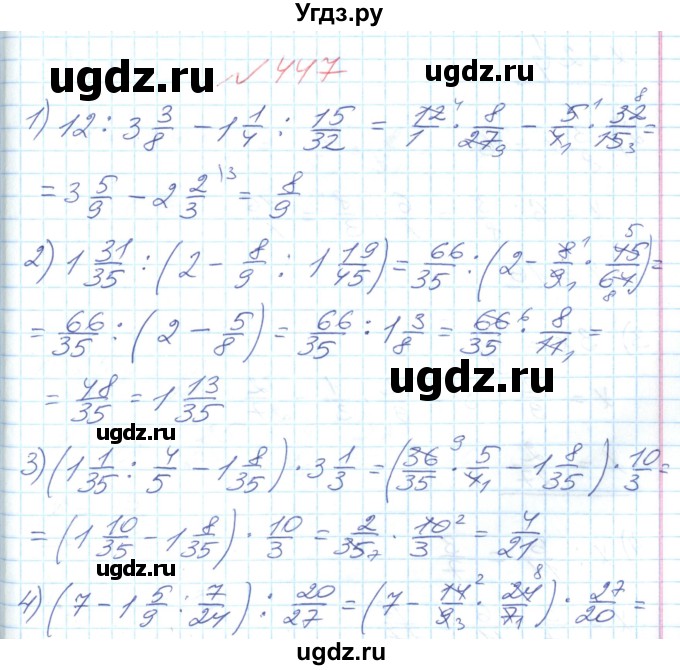 Угдз.ру
ugdz.ru
ugdz.ru
№ 447
1) 12 : 3 3/8 − 1 1/4 : 15/32 = 12/1 ⁴ · 8/27 ₉ − 5/4 ₁ ¹ · 32/15 ₃ ⁸ =
= 3 5/9 − 2 2/3 \3 = 8/9
2) 1 31/35 : (2 − 8/9 : 1 19/45) = 66/35 : (2 − 8/9 ₁ ¹ · 45/64 ₈ ⁵) =
= 66/35 : (2 − 5/8) = 66/35 : 1 3/8 = 66/35 ⁶ · 8/11 ₁ =
= 48/35 = 1 13/35
ugdz.ru
ugdz.ru
3) (1 1/35 : 4/5 − 1 8/35) · 3 1/3 = (36/35 ⁹ · 5/4 ₁ − 1 8/35) · 10/3 =
= (1 10/35 − 1 8/35) · 10/3 = 2/35 ₇ · 10/3 ² = 4/21
ugdz.ru
4) (7 − 1 5/9 : 7/24) : 20/27 = (7 − 14/9 ₃ ² · 24/7 ₁ ⁸) · 27/20 =
ugdz.ru